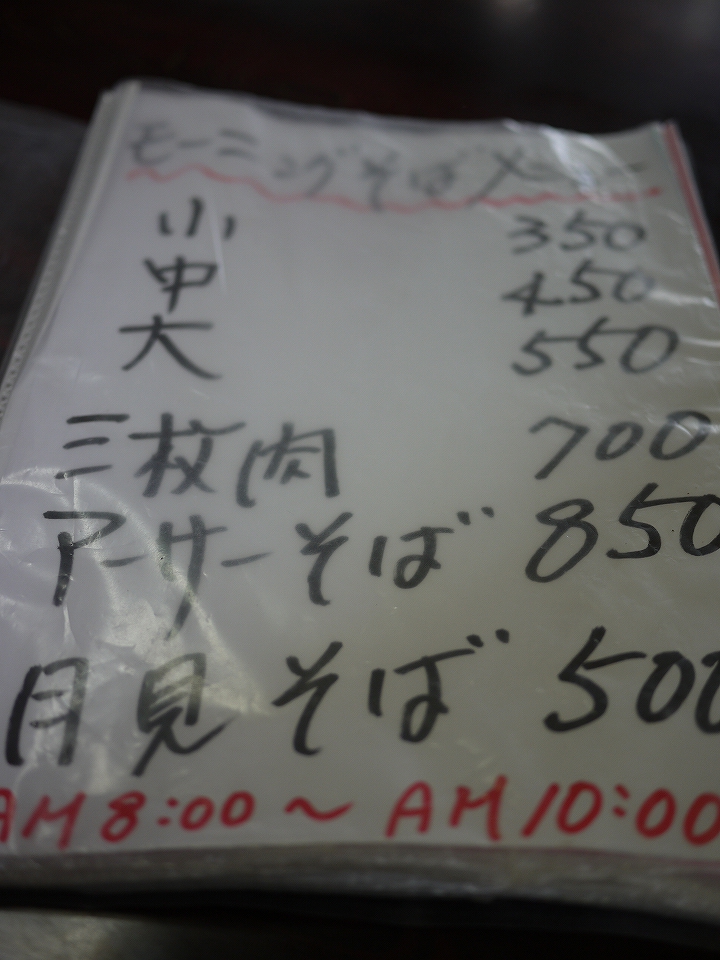 モーニングそばメニュー
小 350
中 450
大 550
三枚肉 700
アーサーそば 850
月見そば 500
AM 8:00 〜 AM 10:00